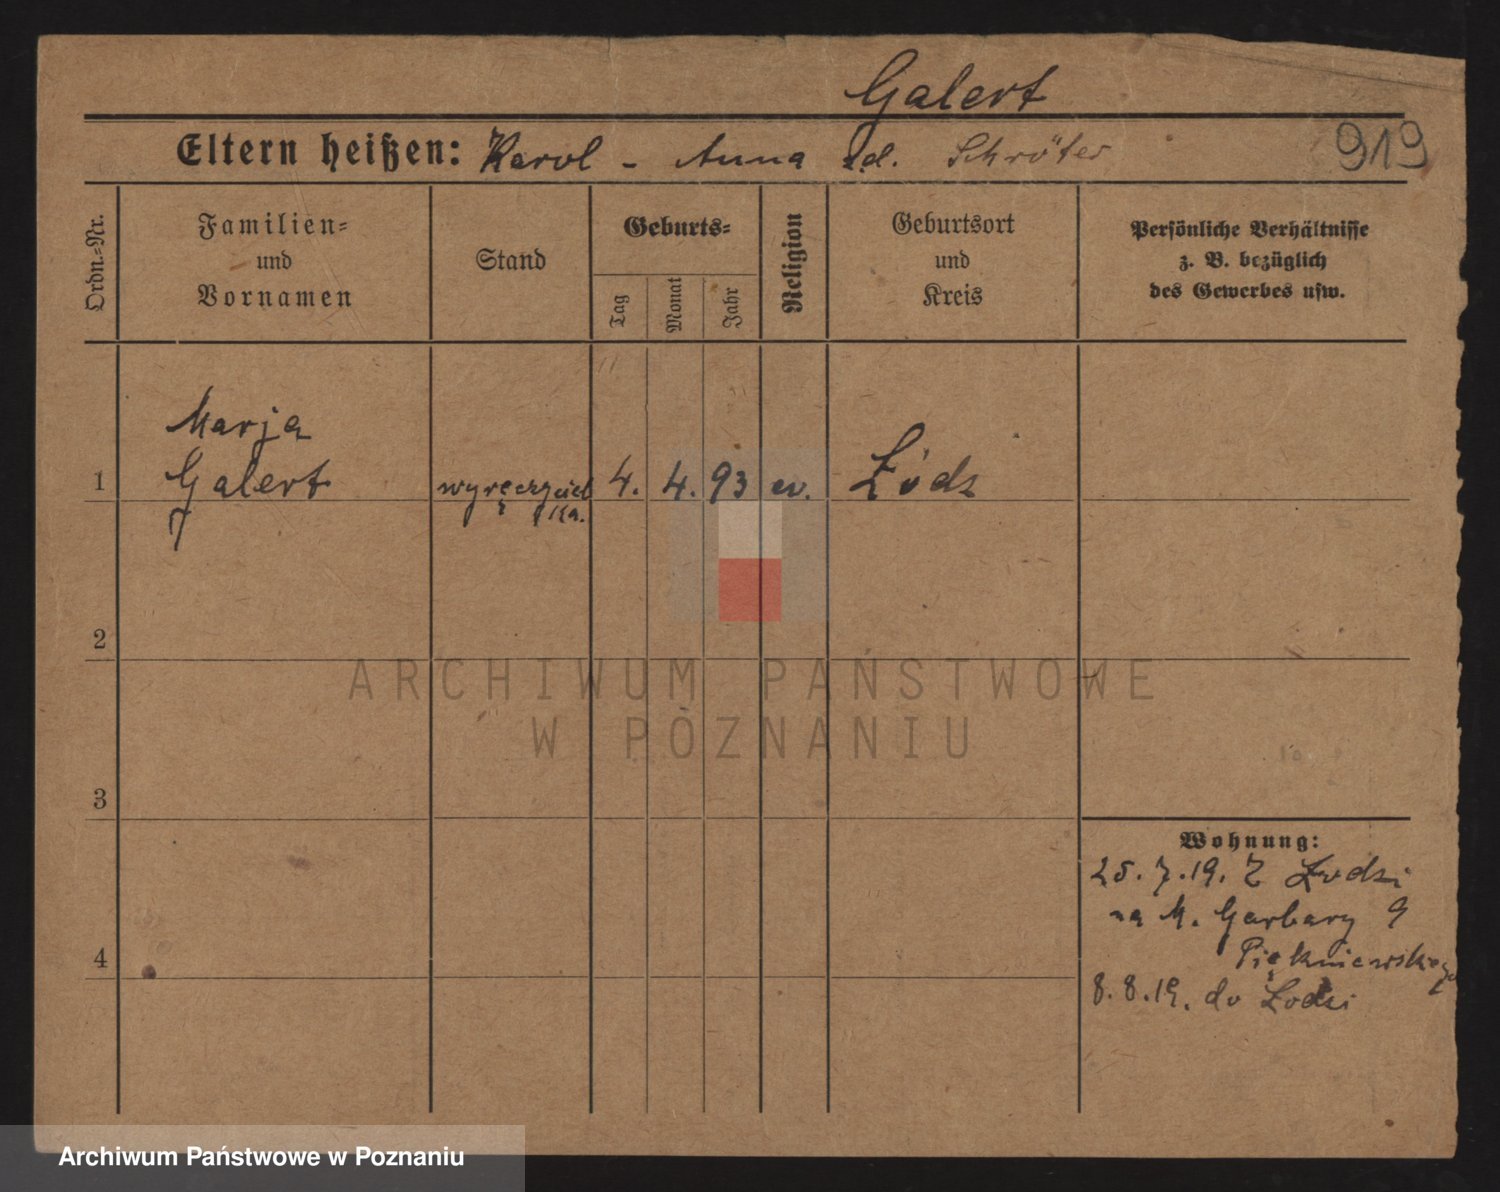 Galert
Eltern heißen: Karol - Anna zd. Schröter
919
Ordn.-Nr.
Familien-
und
Vornamen
Stand
Geburts-
Tag
Monat
Jahr
Religion
Geburtsort
und
Kreis
Persönliche Verhältnisse
z. B. bezüglich
des Gewerbes usw.
Marja
1 Galert wyręczyciel 4. 4. 93 ev. Łódz
ka.
2
ARCHIWUM PAŃSTWOWE
W POZNANIU
3
Wohnung:
25.7.19. z Łodzi
na M. Garbary 9
Piękniewskiego
4
8.8.19. do Łodzi
Archiwum Państwowe w Poznaniu